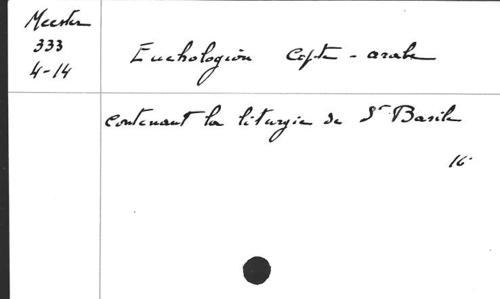 Meester
333
4-14
Euchologion Copte-arabe
contenant la liturgie de St Basile
16°